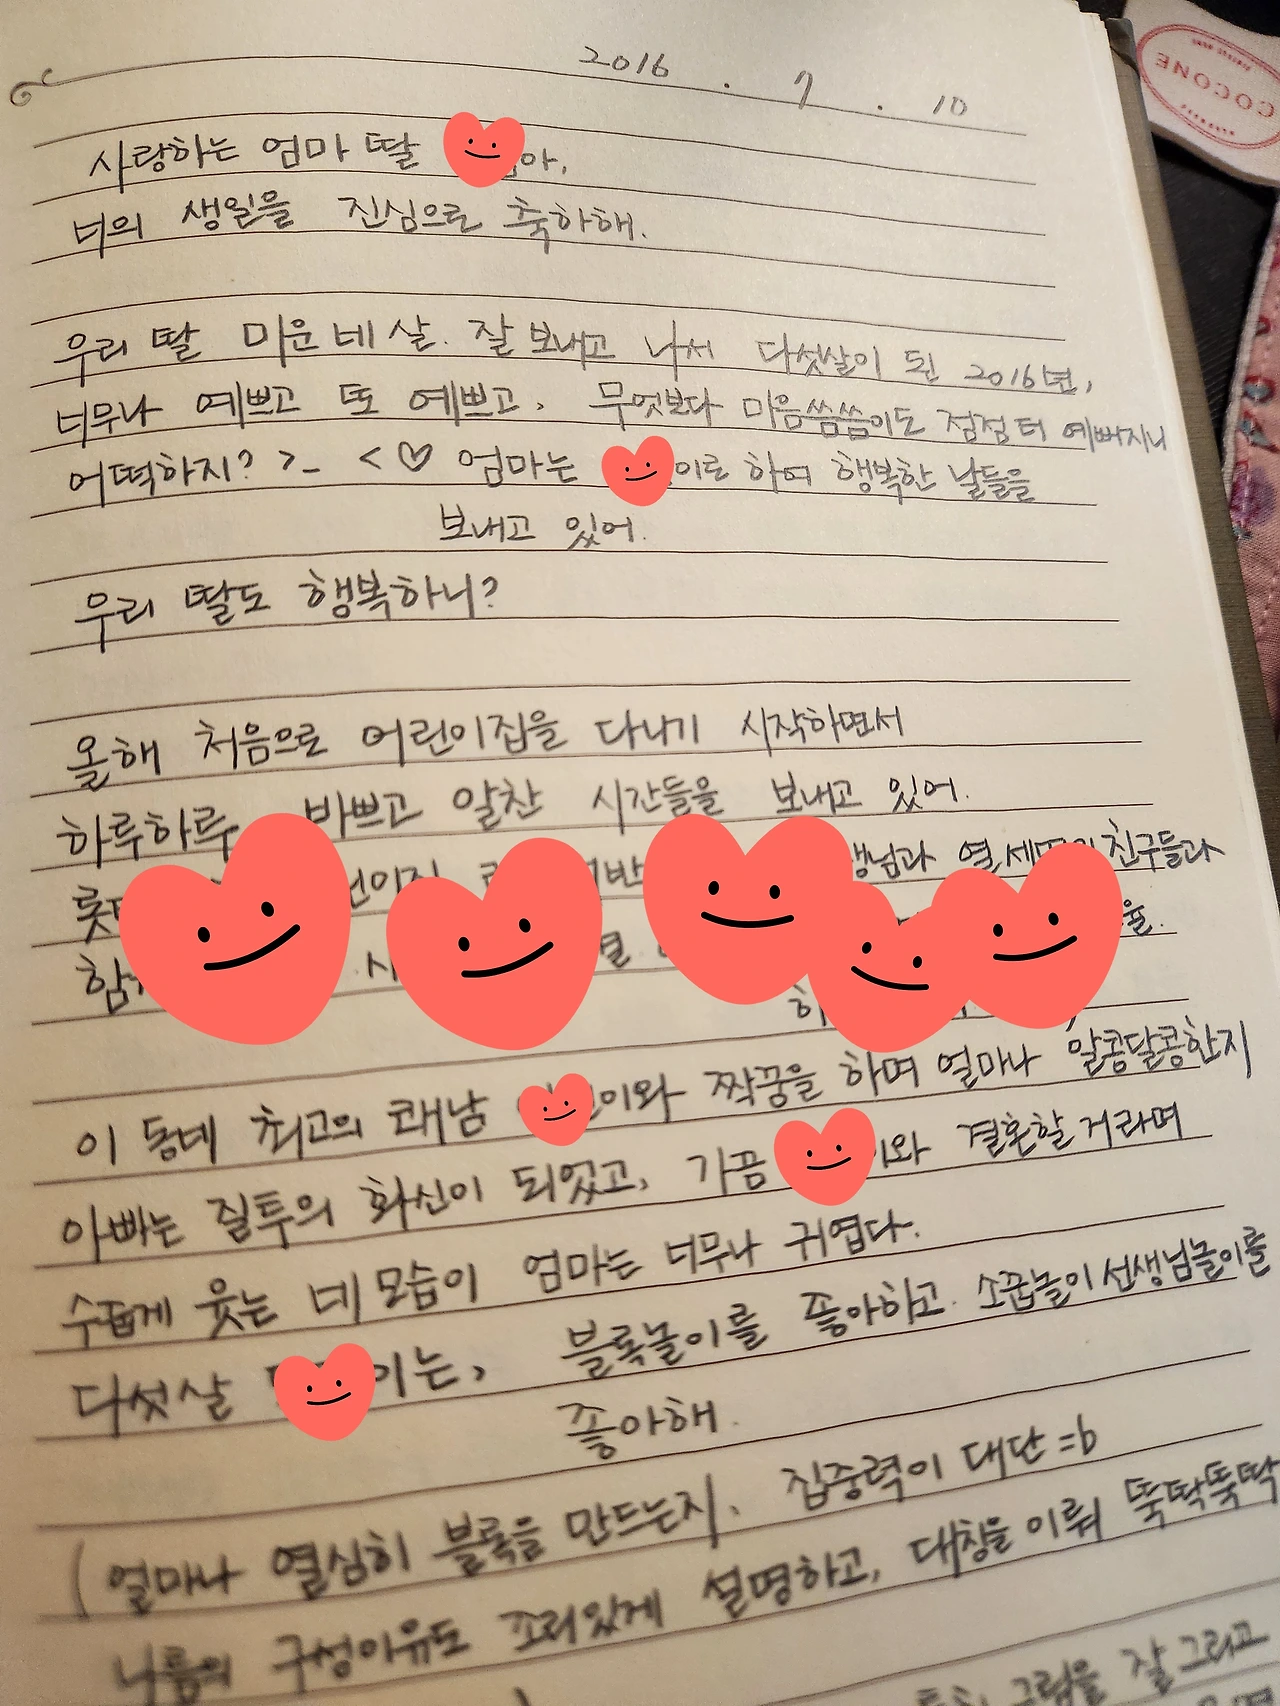 2016 . 7 . 10
사랑하는 엄마 딸 아,
너의 생일을 진심으로 축하해.
우리 딸 미운 네 살. 잘 보내고 나서 다섯살이 된 2016년,
너무나 예쁘고 또 예쁘고, 무엇보다 마음씀씀이도 점점 더 예뻐지니
어떡하지? >_ < ♡ 엄마는 이로 하여 행복한 날들을
보내고 있어.
우리 딸도 행복하니?
올해 처음으로 어린이집을 다니기 시작하면서
하루하루 바쁘고 알찬 시간들을 보내고 있어.
생님과 친구들과
이 동네 최고의 쾌남 이와 짝꿍을 하며 얼마나 알콩달콩한지
아빠는 질투의 화신이 되었고, 가끔 이와 결혼할 거라며
수줍게 웃는 네 모습이 엄마는 너무나 귀엽다.
다섯살 이는, 블록놀이를 좋아하고 소꿉놀이 선생님놀이를
좋아해.
( 얼마나 열심히 블록을 만드는지, 집중력이 대단 =b
나름의 구성이유도 조리있게 설명하고, 대칭을 이뤄 뚝딱뚝딱
그림을 잘 그리고
COCONE